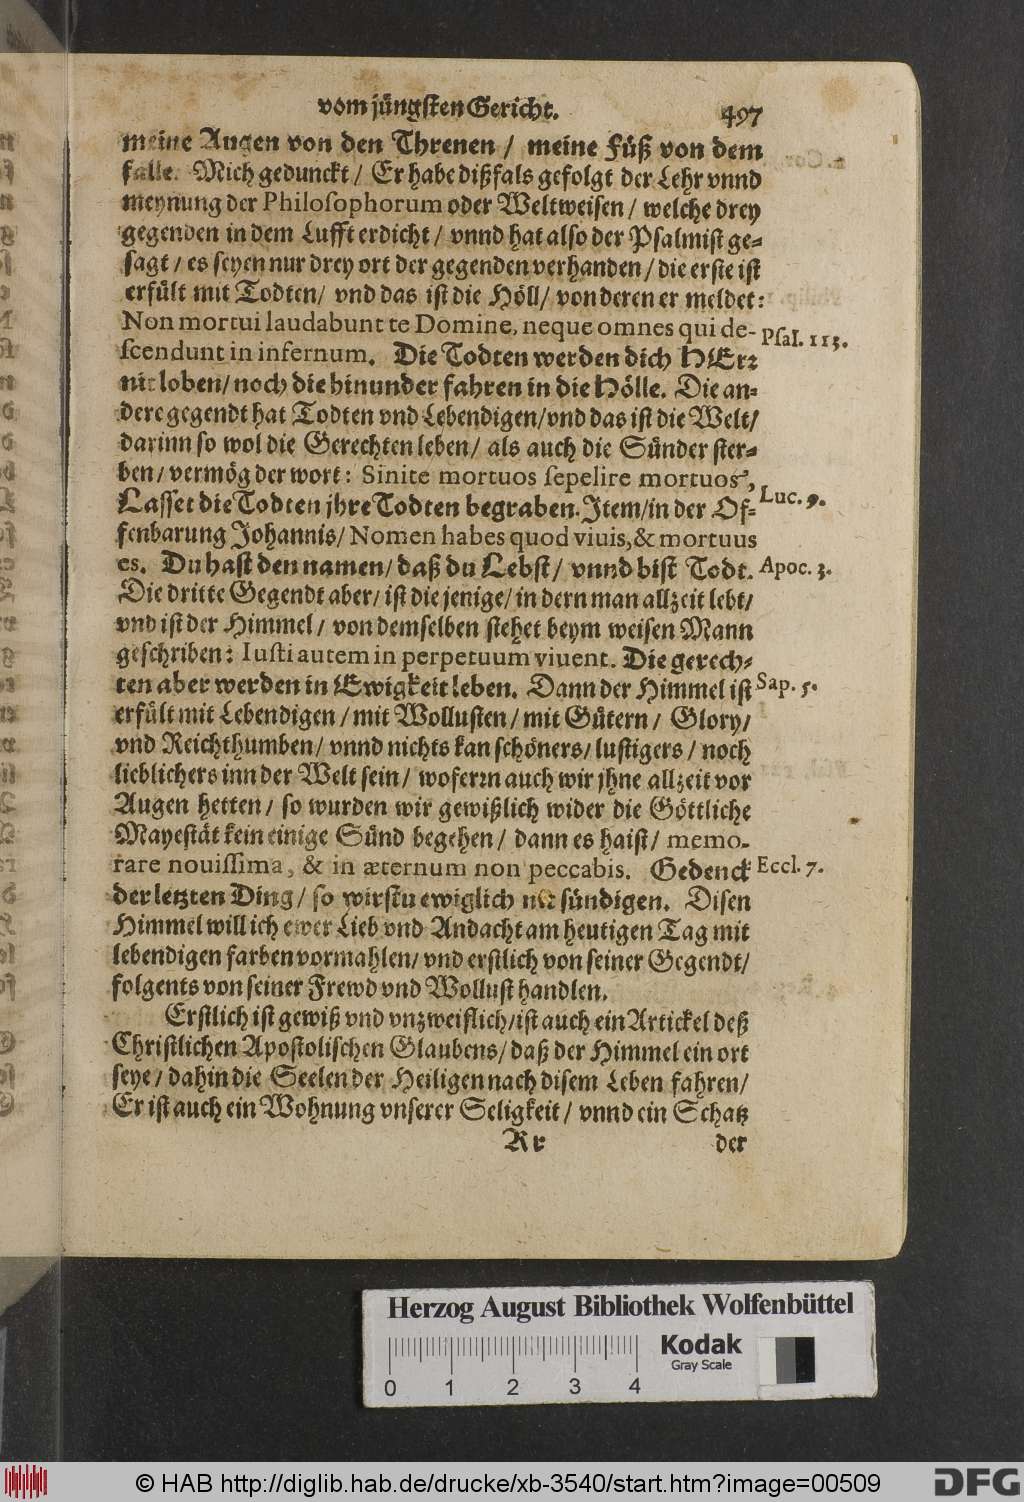 vom jüngsten Gericht. 497
meine Augen von den Threnen / meine Füß von dem
falle. Mich gedunckt / Er habe dißfals gefolgt der Lehr vnnd
meynung der Philosophorum oder Weltweisen / welche drey
gegenden in dem Lufft erdicht / vnnd hat also der Psalmist ge-
sagt / es seyen nur drey ort der gegenden verhanden / die erste ist
erfült mit Todten / vnd das ist die Höll / von deren er meldet:
Non mortui laudabunt te Domine, neque omnes qui de- Psal. 113.
scendunt in infernum. Die Todten werden dich HErz
nit loben / noch die hinunder fahren in die Hölle. Die an-
dere gegendt hat Todten vnd Lebendigen / vnd das ist die Welt /
darinn so wol die Gerechten leben / als auch die Sünder ster-
ben / vermög der wort: Sinite mortuos sepelire mortuos,
Lasset die Todten jhre Todten begraben. Item / in der Of- Luc. 9.
fenbarung Johannis / Nomen habes quod viuis, & mortuus
es. Du hast den namen / daß du Lebst / vnnd bist Todt. Apoc. 3.
Die dritte Gegendt aber / ist die jenige / in dern man allzeit lebt /
vnd ist der Himmel / von demselben stehet beym weisen Mann
geschriben: Iusti autem in perpetuum viuent. Die gerech-
ten aber werden in Ewigkeit leben. Dann der Himmel ist Sap. 5.
erfült mit Lebendigen / mit Wollusten / mit Gütern / Glory /
vnd Reichthumben / vnnd nichts kan schöners / lustigers / noch
lieblichers inn der Welt sein / woferrn auch wir jhne allzeit vor
Augen hetten / so wurden wir gewißlich wider die Göttliche
Mayestät kein einige Sünd begehen / dann es haist / memo-
rare nouissima, & in æternum non peccabis. Gedenck Eccl. 7.
der letzten Ding / so wirstu ewiglich nit sündigen. Disen
Himmel will ich ewer Lieb vnd Andacht am heutigen Tag mit
lebendigen farben vormahlen / vnd erstlich von seiner Gegendt /
folgents von seiner Frewd vnd Wollust handlen.
Erstlich ist gewiß vnd vnzweiflich / ist auch ein Artickel deß
Christlichen Apostolischen Glaubens / daß der Himmel ein ort
seye / dahin die Seelen der Heiligen nach disem Leben fahren /
Er ist auch ein Wohnung vnserer Seligkeit / vnnd ein Schatz
Rr der
Herzog August Bibliothek Wolfenbüttel
Kodak
Gray Scale
0 1 2 3 4
© HAB http://diglib.hab.de/drucke/xb-3540/start.htm?image=00509
DFG